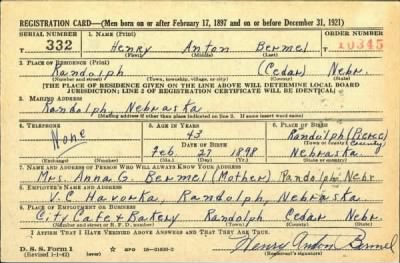 REGISTRATION CARD—(Men born on or after February 17, 1897 and on or before December 31, 1921)
SERIAL NUMBER 1. NAME (Print) ORDER NUMBER
T 332 Henry Anton Bermel 10345
(First) (Middle) (Last)
2. PLACE OF RESIDENCE (Print)
Randolph (Cedar) Nebr.
(Town, township, village, or city) (County) (State)
[THE PLACE OF RESIDENCE GIVEN ON THE LINE ABOVE WILL DETERMINE LOCAL BOARD
JURISDICTION; LINE 2 OF REGISTRATION CERTIFICATE WILL BE IDENTICAL]
3. MAILING ADDRESS
Randolph, Nebraska
[Mailing address if other than place indicated on line 2. If same insert word same]
4. TELEPHONE 5. AGE IN YEARS 6. PLACE OF BIRTH
None 43 Randolph (Pierce)
DATE OF BIRTH (Town or county)
Feb. 27 1898 Nebraska
(Exchange) (Number) (Mo.) (Day) (Yr.) (State or country)
7. NAME AND ADDRESS OF PERSON WHO WILL ALWAYS KNOW YOUR ADDRESS
Mrs. Anna G. Bermel (Mother) Randolph Nebr.
8. EMPLOYER'S NAME AND ADDRESS
V. C Havorka, Randolph, Nebraska
9. PLACE OF EMPLOYMENT OR BUSINESS
City Cafe & Bakery Randolph Cedar Nebr.
(Number and street or R. F. D. number) (Town) (County) (State)
I AFFIRM THAT I HAVE VERIFIED ABOVE ANSWERS AND THAT THEY ARE TRUE.
D. S. S. Form 1
(Revised 1-1-42) (over) Henry Anton Bermel
(Registrant's signature)